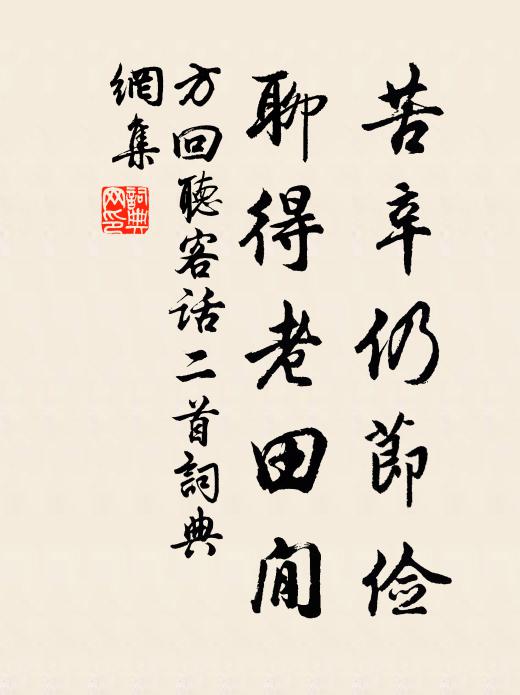 苦辛仍節儉
聊得老田間
方回聽客話二首詞典
網集
詞典網印